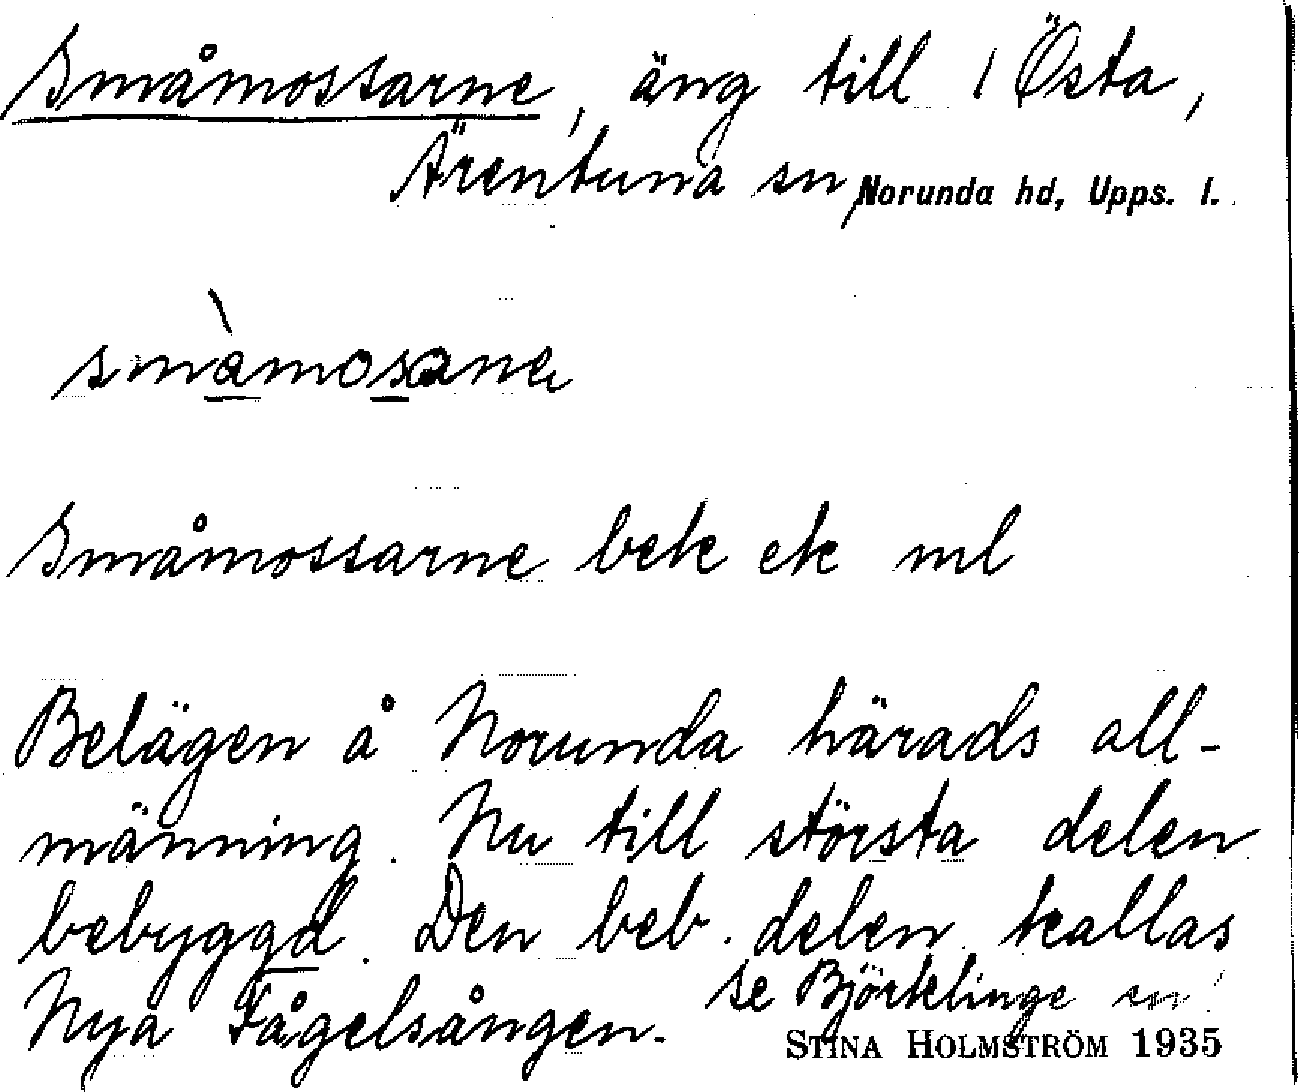 Småmossarne, äng till 1 Östa,
Ärentuna sn, Norunda hd, Upps. l.
smàmosane
Småmossarne bek ek ml
Belägen å Norunda härads all-
männing. Nu till största delen
bebyggd. Den beb. delen kallas
Nya Fågelsången. se Björklinge sn!
STINA HOLMSTRÖM 1935